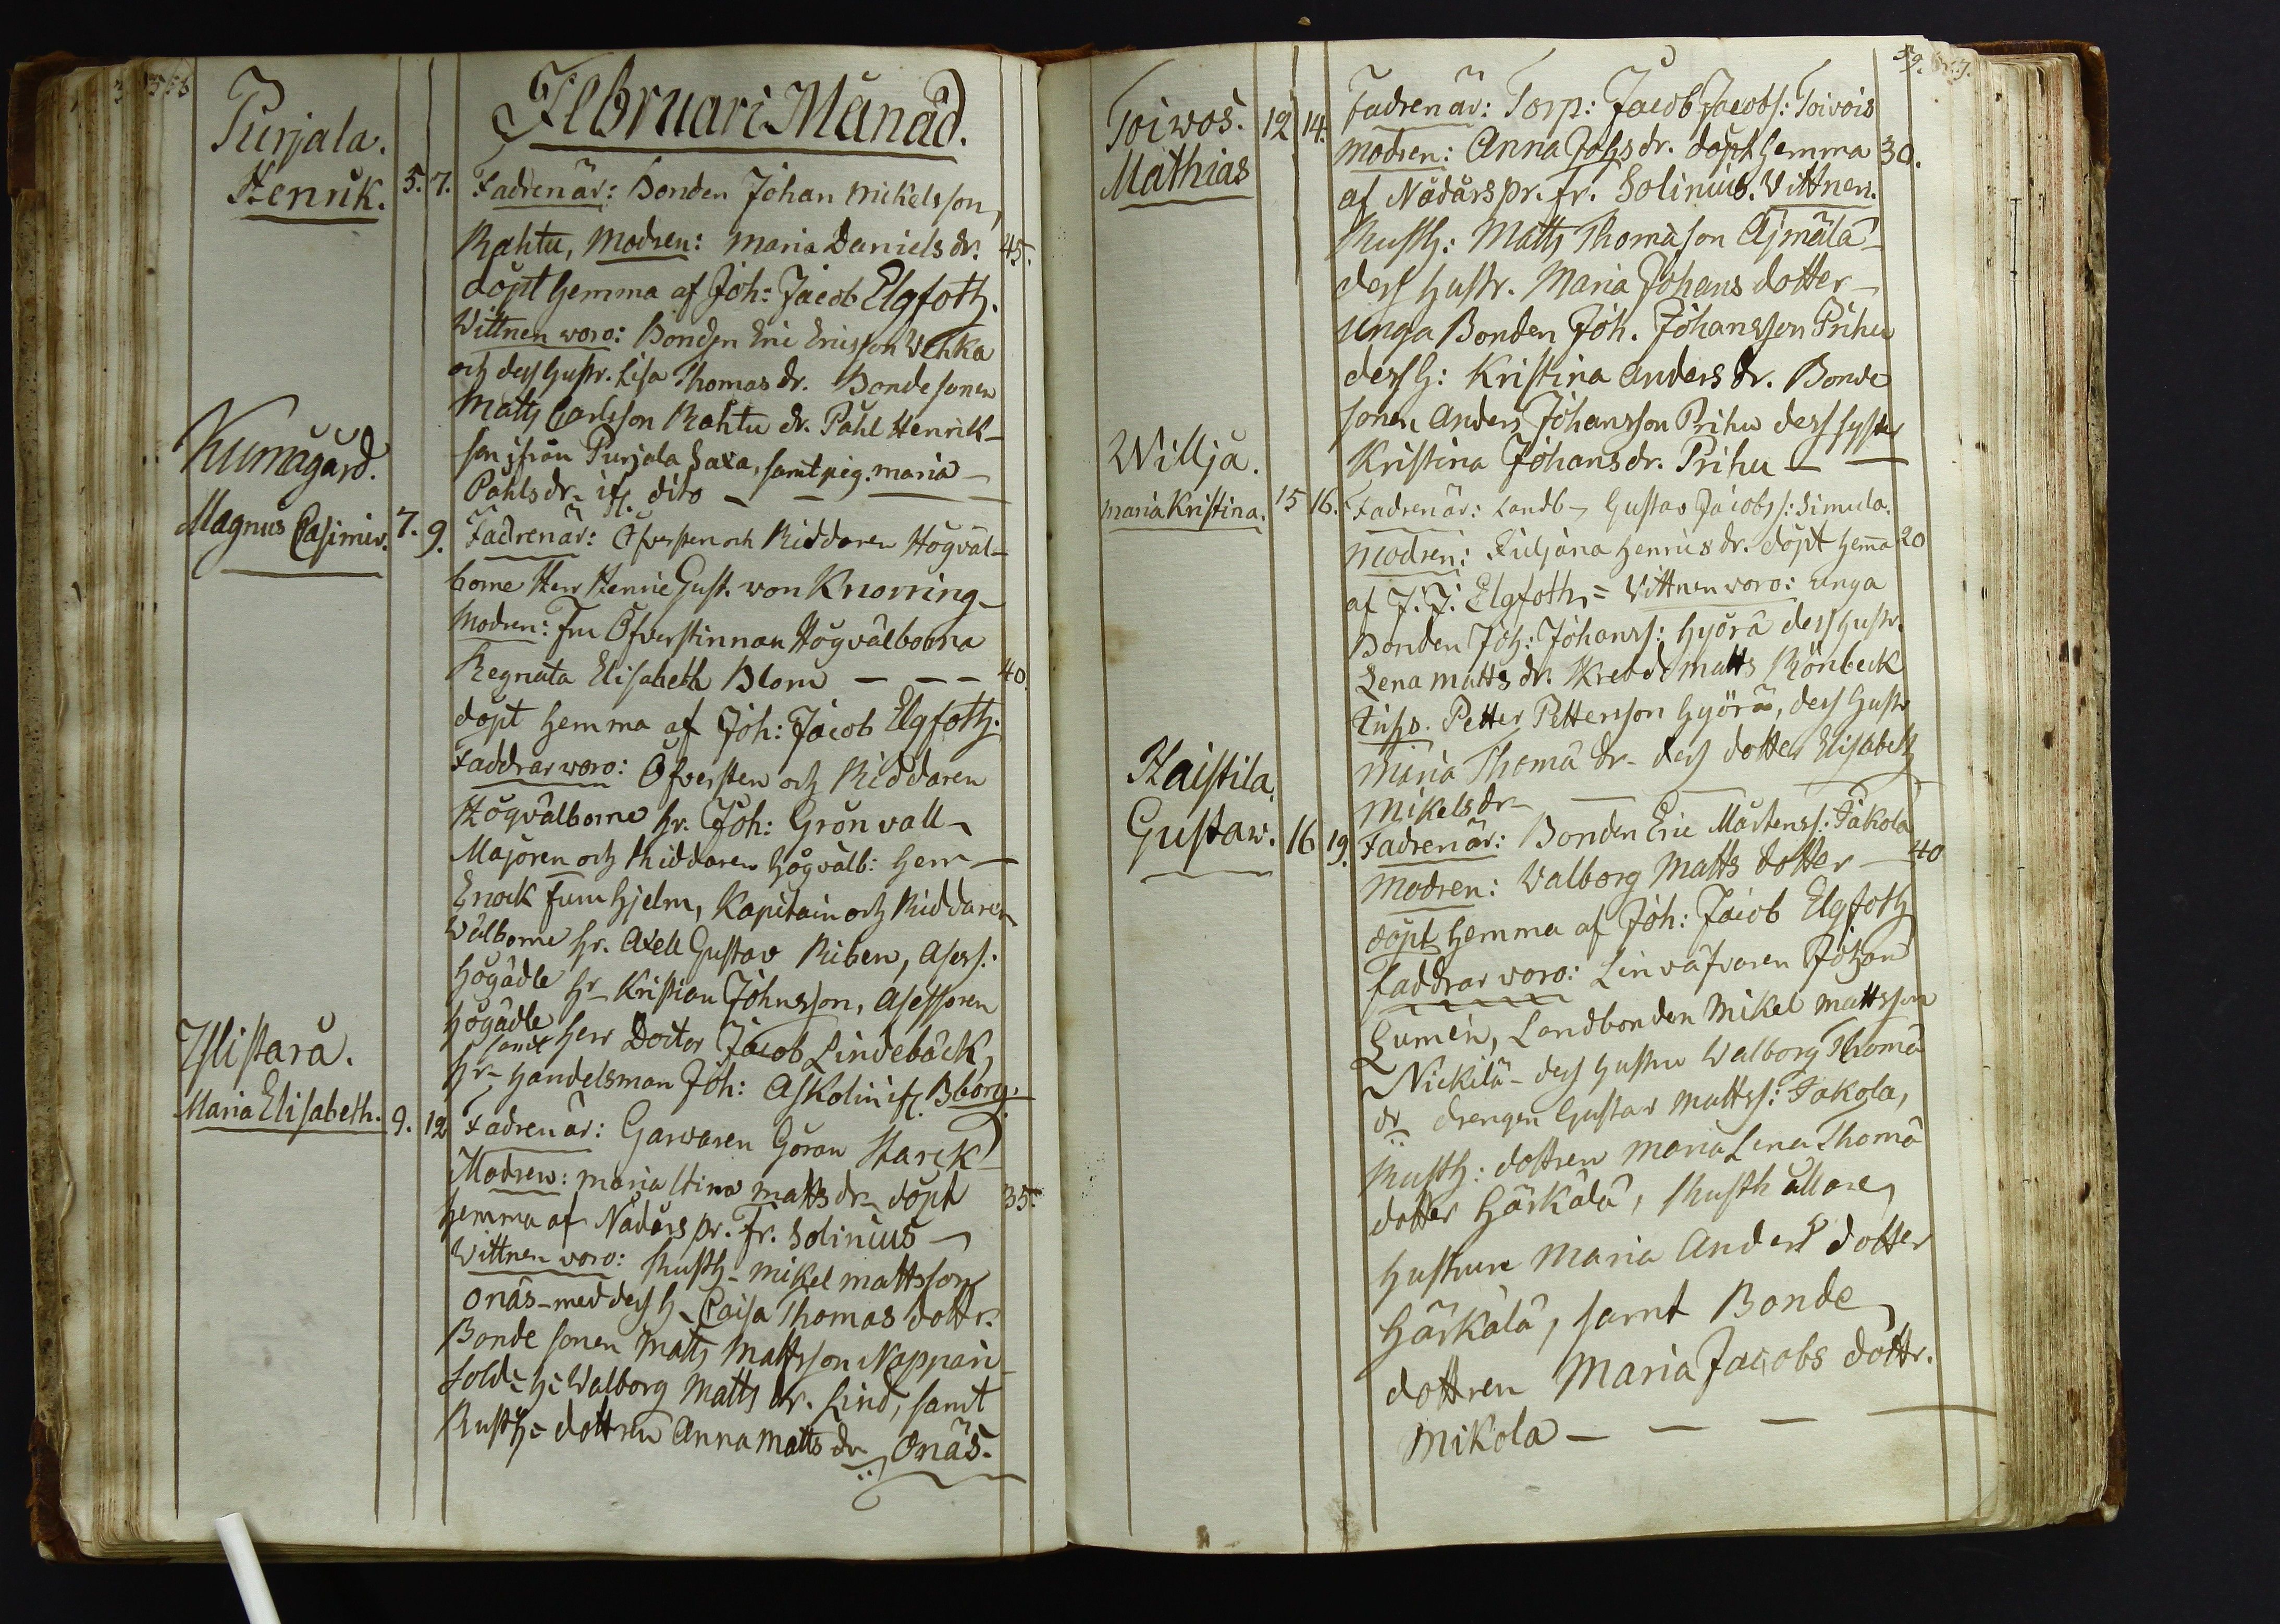 358
Februari Månad.
Purjala.
Henrik. 5. 7. Fadren är: Bonden Johan Mickelsson,
Rahtu, Modren: Maria Daniels dr. 45.
döpt hemma af Joh: Jacob Elgfoth.
Wittnen woro: Bonden Eric Ericsson Uhka
och dess hustr. Lisa Thomas dr. Bondesonen
Matts Carlsson Rahtu dr. Påhl Henrik-
son ifrån Purjala Saxa, samt pig. Maria
Påhls dr. if. dito
Kumagård.
Magnus Casimir. 7. 9. Fadren är: Öfversten och Riddaren Högväl-
borne Herr Henric Gust. von Knorring
Modren: Fru Öfverstinnan Högvälborna
Regnata Elisabeth Blom 40.
döpt hemma af Joh: Jacob Elgfoth.
Faddrar woro: Öfversten och Riddaren
Högvälborne hr. Joh: Grönvall
Majoren och Riddaren Högvälb: herr
Enock Furuhjelm, Kapitain och Riddaren
Wälborne hr. Axell Gustav Riben, Asess:
högädle hr Kristian Johnsson, Asessoren
högädle herr Doctor Jacob Lindebäck,
samt
hr. handelsman Joh: Askolin if. Bborg.
Ylistarå.
Maria Elisabeth. 9. 12 Fadren är: Garvaren Göran Starck
Modren: Maria Stina Matts dr. döpt 35.
hemma af Nådårs pr. Fr. Solinius
Wittnen woro: Rusth. Mikel Mattsson
Onäs med dess h. Caisa Thomas dottr.
Bonde sonen Matts Mattsson Nappari
Sold: h: Walborg Matts dr. Lind, samt
Rusth: dottren Anna Matts dr Onäs.
59.
Toiwos.
Mathias 12 14. Fadren är: Torp: Jacob Jacobs: Toivois
Modren: Anna Johs dr. döpt hemma 30.
af Nådårs pr. fr. Solinius. Vittnen.
Rusth: Matts Thomason Äjmälä
dess hustr. Maria Johans dotter
unga Bonden Joh. Johansson Prihu
dess h: Kristina Anders dr. Bonde
sonen Anders Johansson Prihu dess syster
Kristina Johans dr. Prihu
Willjä.
Maria Kristina. 15 16. Fadren är: Landb Gustav Jacobss: Simula.
Modren: Juljana Henrics dr. döpt hema 20
af J. J. Elgfoth = Vittnen woro: unga
Bonden Joh: Johanss: hyörä dess hustr.
Lena Matts dr. Matts Rönbeck
Petter Pettersson hyörä, dess hustr
Maria Thoma dr dess dotter Elisabeth
Mikels dr
Haistila.
Gustaw. 16 19. Fadren är: Bonden Eric Mårtenss: Jakola
Modren: Walborg Matts dotter 40
döpt hemma af Joh: Jacob Elgfoth
Faddrar woro: Linväfvaren Johan
Lumein, Landbonden Mikel Mattsson
Nickilä dess hustru Walborg Thoma
dr drengen Gustav Mattss: Jakola,
Rusth: dottren Maria Lena Thoma
dotter Härkälä, Rusthållare
hustrun Maria Anders dotter
Härkälä, samt Bonde
dottren Maria Jacobs dottr.
Mikola